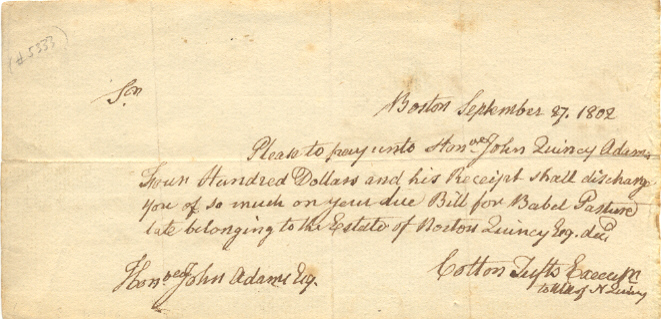 (#5333)
Sir
Boston September 27. 1802
Please to pay unto Honored John Quincy Adams
Four Hundred Dollars and his Receipt shall discharge
you of so much on your due Bill for Babel Pasture
late belonging to the Estate of Norton Quincy Esq. decd
Cotton Tufts Execur
to Will of N Quincy
Honored John Adams Esq.